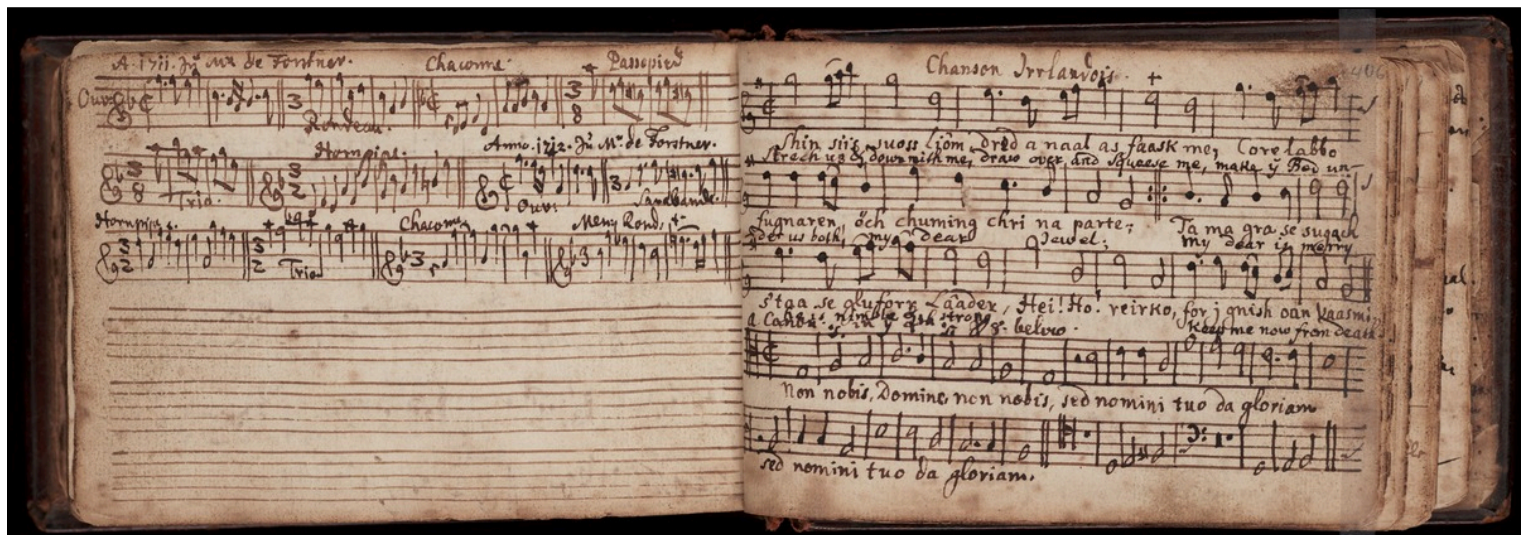 A. 1711. Jũ Mr de Forstner. Chaconne. Passepied
Ouv:
Rondeau.
Hornpipe. Anno. 1712. Jũ Mr de Forstner.
Trio. Ouv: Sarabande.
Hornpipe. Chaconne Meny Rond:
Trio
Chanson Irrlandois. 406
Shin siis suoss liom dred a naal as faask me, Core labbo
Strech us down with me, draw over, and squeese me, make ÿ Bed un-
fugnaren, öch chuming chri na parte; Ta ma gra se sugach
der us both, my dear Jewel; my dear is merry
staa se gluforr Laader, Hei! Ho! reirko, for j gnish oan baasmi
nimble strong Keep me now from death
a Canon in below.
Non nobis, Domine non nobis, sed nomini tuo da gloriam
sed nomini tuo da gloriam.